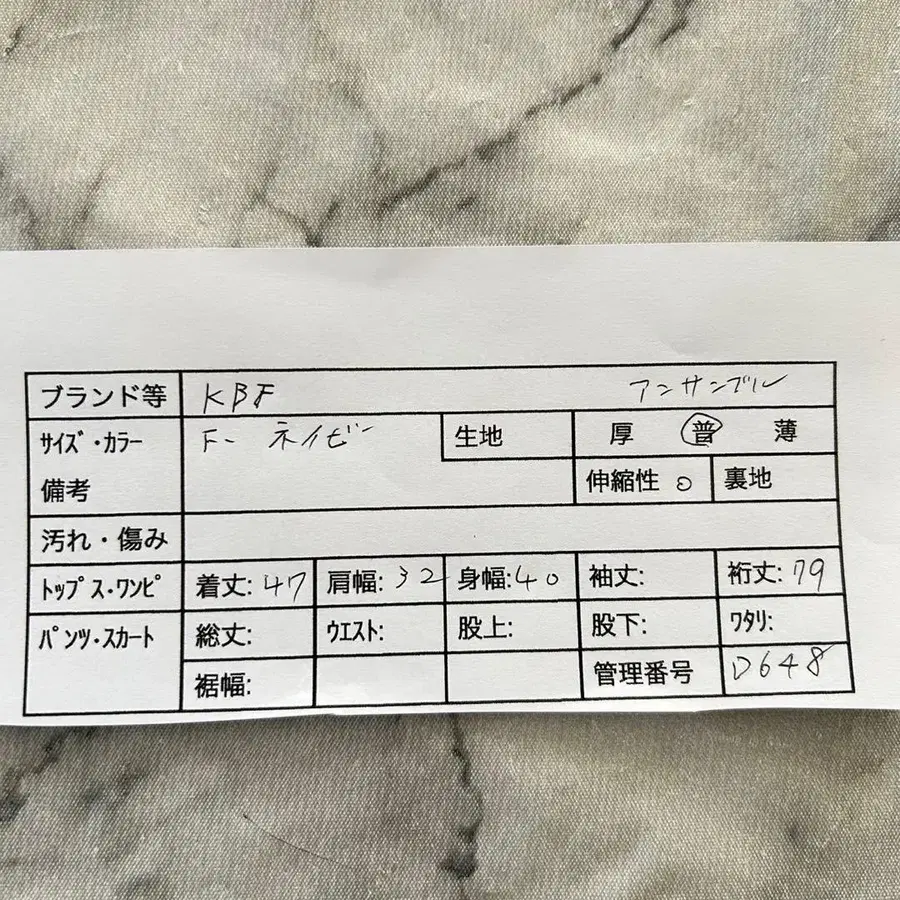 ブランド等 KBF アンサンブル
サイズ・カラー F- ネイビー 生地 厚 普 薄
備考 伸縮性 ○ 裏地
汚れ・傷み
トップス・ワンピ 着丈: 47 肩幅: 32 身幅: 40 袖丈: 裄丈: 79
パンツ・スカート 総丈: ウエスト: 股上: 股下: ワタリ:
裾幅: 管理番号 D648